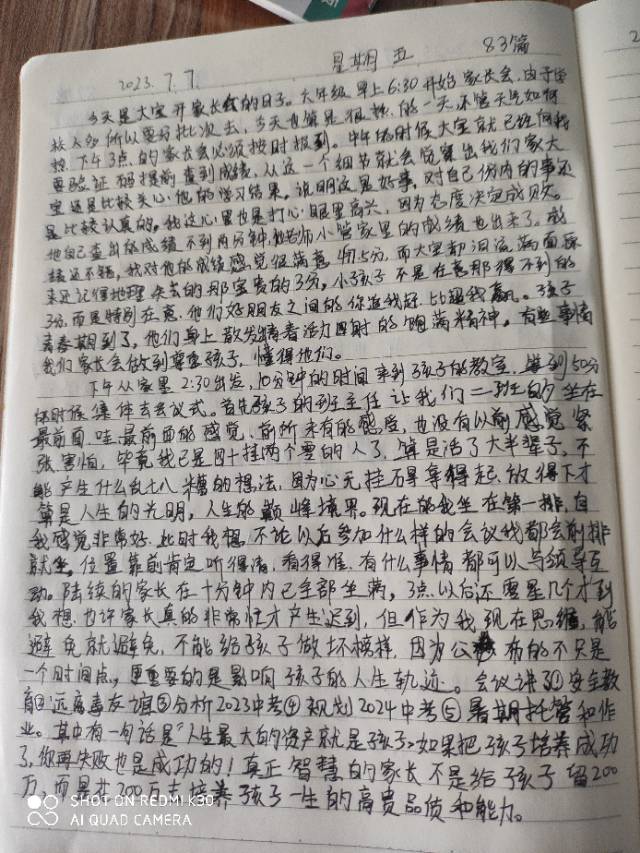 2023.7.7. 星期五 83篇
今天是大宝开家长会的日子。六年级早上6:30开始家长会,由于学
校人多所以要分批次去,今天也算是很热的一天,不管天气如何
热,下午3点的家长会必须按时报到。中午的时候大宝就已经
要验证码提前查到成绩,从这一个细节就会觉察出我们家大
宝还是比较关心他的学习结果。说明这是好事,对自己份内的事还
是比较认真的。我这心里也是打心眼里高兴,因为态度决定成败。
他自己查出的成绩不到两分钟,老师小管家里的成绩也出来了。成
绩还不错,我对他的成绩感觉很满意 分,而大宝却泪流满面
来还记得地理失去的那宝贵的3分,小孩子不是在意那得不到的
3分,而是特别在意他们好朋友之间的你追我赶,比超我赢。孩子
青春期到了,他们身上散发着青春活力四射的饱满精神。有些事情
我们家长会做到尊重孩子,懂得他们。
下午从家里2:30出发,10分钟的时间来到孩子的教室,等到50分
的时候集体去 仪式。首先孩子的班主任让我们二班的坐在
最前面,哇,最前面的感觉,前所未有的感度,也没有以前感觉紧
张害怕,毕竟我已是四十挂两个零的人了,算是活了大半辈子,不
能产生什么乱七八糟的想法,因为心无挂碍拿得起,放得下才
算是人生的光明,人生的巅峰境界。现在的我坐在第一排,自
我感觉非常好,此时我想,不论以后参加什么样的会议我都会前排
就坐,位置靠前肯定听得清,看得准,有什么事情都可以与领导互
动。陆续的家长在十分钟内已全部坐满,3点以后还零星几个才到
我想也许家长真的非常忙才产生迟到,但作为我现在思维,能
避免就避免,不能给孩子做坏榜样,因为公布的不只是
一个时间点,更重要的是影响孩子的人生轨迹。会议讲了①安全教
育②远离毒友谊③分析2023中考④规划2024中考⑤暑期托管和作
业。其中有一句话是“人生最大的资产就是孩子”如果把孩子培养成功
了,你再失败也是成功的!真正智慧的家长不是给孩子留200
万,而是花200万去培养孩子一生的高贵品质和能力。
SHOT ON REDMI K30
AI QUAD CAMERA